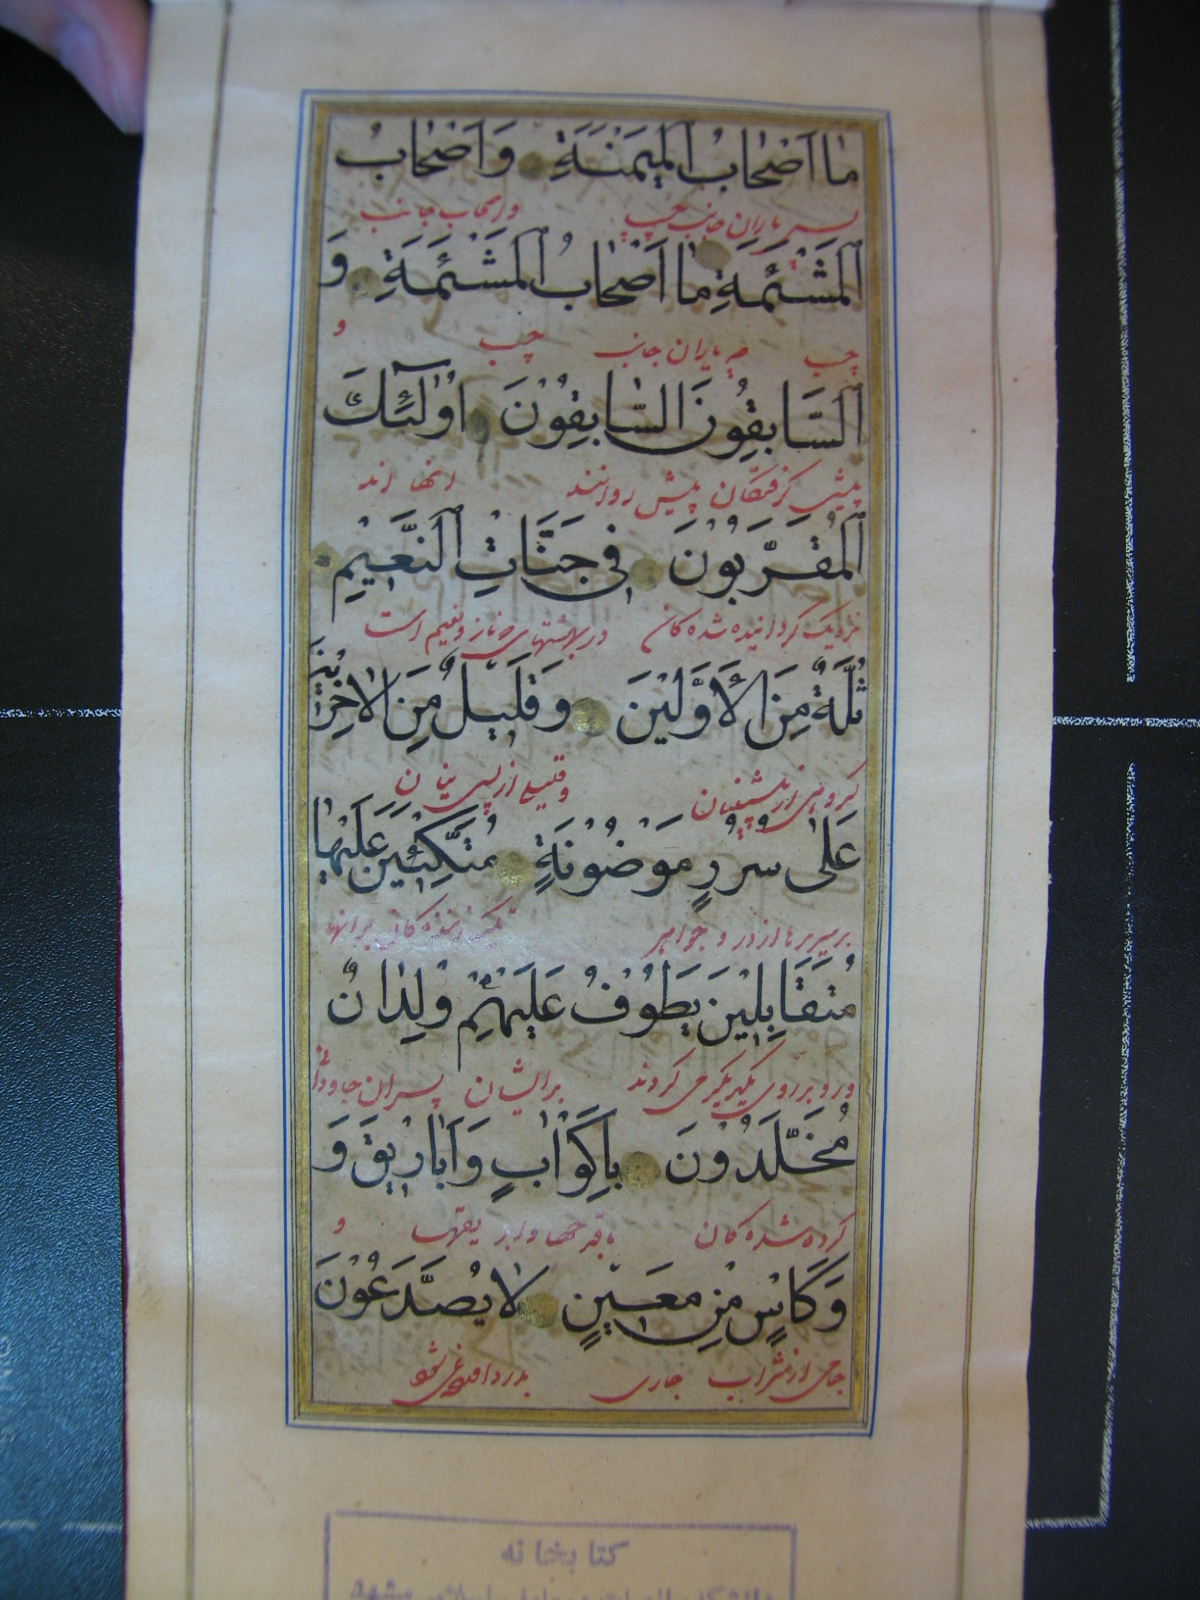 مٰا اَصْحٰابُ الْمَیْمَنَةِ وَ اَصْحٰابُ
پس یاران جانب چپ و اصحاب جانب
الْمَشْئَمَةِ مٰا اَصْحٰابُ الْمَشْئَمَةِ وَ
چپ چه یاران جانب چپ و
السّٰابِقُونَ السّٰابِقُونَ اُولٰٓئِكَ
پیشی گرفتگان پیش روانند انها اند
الْمُقَرَّبُونَ فٖی جَنّٰاتِ النَّعٖیمِ
نزدیک گردانیده شده کان در بهشتهای با ناز و نعیم است
ثُلَّةٌ مِنَ الْاَوَّلٖینَ وَ قَلٖیلٌ مِنَ الْاٰخِرٖینَ
گروهی از پیشینیان و قلیلی از پسینیان
عَلٰی سُرُرٍ مَوْضُونَةٍ مُتَّكِئٖینَ عَلَیْهٰا
بر سریرها از در و جواهر تکیه زننده کان بر انها
مُتَقَابِلٖینَ یَطُوفُ عَلَیْهِمْ وِلْدٰانٌ
و رو بر روی یکدیگر می گروند بر ایشان پسران جاودان
مُخَلَّدُونَ بِاَكْوٰابٍ وَ اَبٰارٖیقَ وَ
کرده شده کان با قدحها و ابریقها و
وَ كَاْسٍ مِنْ مَعٖینٍ لٰا یُصَدَّعُونَ
جامی از شراب جاری بدرد
کتابخانه